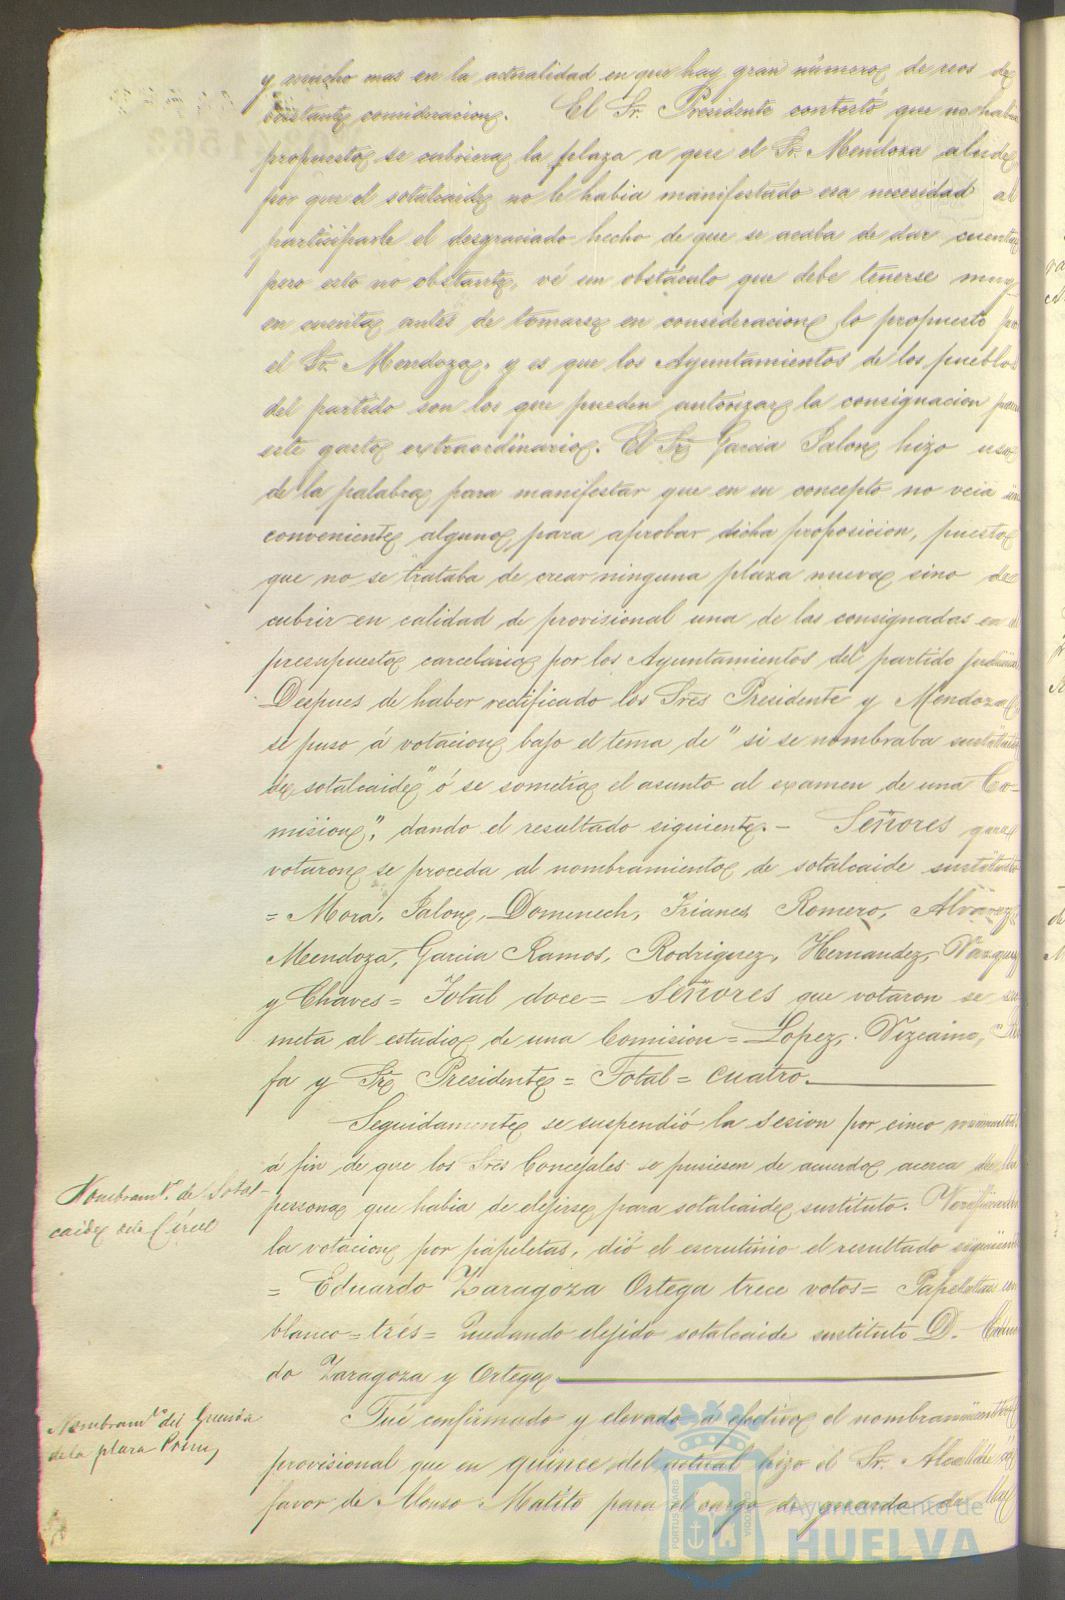 y mucho mas en la actualidad en que hay gran número de reos de
bastante consideracion. El Sr. Presidente contestó que no habia
propuesto se cubriera la plaza a que el Sr. Mendoza alude
por que el sotalcaide no le habia manifestado esa necesidad al
participarle el desgraciado hecho de que se acaba de dar cuenta
pero esto no obstante, vé un obstáculo que debe tenerse muy
en cuenta antes de tomarse en consideracion lo propuesto por
el Sr. Mendoza, y es que los Ayuntamientos de los pueblos
del partido son los que pueden autorizar la consignacion para
este gasto extraordinario. El Sr. Garcia Jalon hizo uso
de la palabra para manifestar que en su concepto no veia in
conveniente alguno para aprobar dicha proposicion, puesto
que no se trataba de crear ninguna plaza nueva sino de
cubrir en calidad de provisional una de las consignadas en el
presupuesto carcelario por los Ayuntamientos del partido judicial
Despues de haber rectificado los Sres Presidente y Mendoza
se puso á votacion bajo el tema de "si se nombraba sustituto
de sotalcaide" ó se sometia el asunto al examen de una Co-
mision", dando el resultado siguiente. - Señores que
votaron se proceda al nombramiento de sotalcaide sustituto
= Mora, Jalon, Domenech, Trianes Romero, Alvarez,
Mendoza, Garcia Ramos, Rodriguez, Hernandez, Vazquez
y Chaves = Total doce = Señores que votaron se so
meta al estudio de una Comision = Lopez, Vizcaino,
fa y Sr Presidente = Total = cuatro.
Seguidamente se suspendió la sesion por cinco minutos
á fin de que los Sres Concejales se pusiesen de acuerdo acerca de la
persona que habia de elejirse para sotalcaide sustituto. Verificada
la votacion por papeletas, dió el escrutinio el resultado siguiente
= Eduardo Zaragoza Ortega trece votos = Papeletas en
blanco = trés = Quedando elejido sotalcaide sustituto D. Eduar
do Zaragoza y Ortega
Nombramto. de Sotal-
caide de la Cárcel
Fué confirmado y elevado á efectivo el nombramiento
provisional que en quince del actual hizo el Sr. Alcalde á
favor de Alonso Matito para el cargo de guarda de la
Nombramto del Guarda
de la plaza Prim
Ayuntamiento de
HUELVA